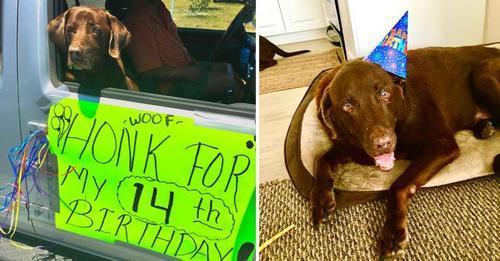 WOOF
HONK FOR
MY 14th
BIRTHDAY